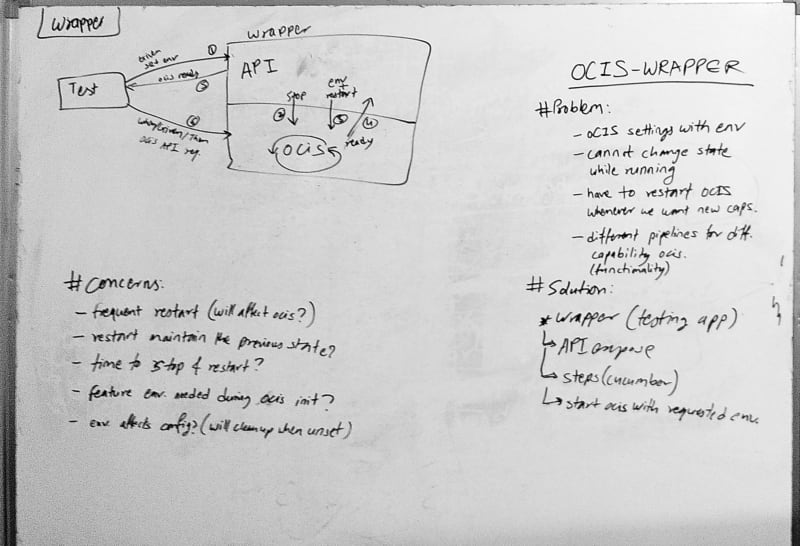 Wrapper
wrapper
API
Given
set env
①
ocis ready
⑤
Test
⑥
When/Given/Then
OCIS API req.
stop
②
env
+
restart
③
④
ready
OCIS
OCIS-WRAPPER
# Problem:
- OCIS settings with env
- cannot change state
while running
- have to restart OCIS
whenever we want new caps.
- different pipelines for diff.
capability ocis.
(functionality)
# Solution:
* wrapper (testing app)
↳ API expose
↳ steps (cucumber)
↳ start ocis with requested env.
# Concerns:
- frequent restart (will affect ocis?)
- restart maintain the previous state?
- time to stop & restart?
- feature env. needed during ocis init?
- env. affects config? (will cleanup when unset)